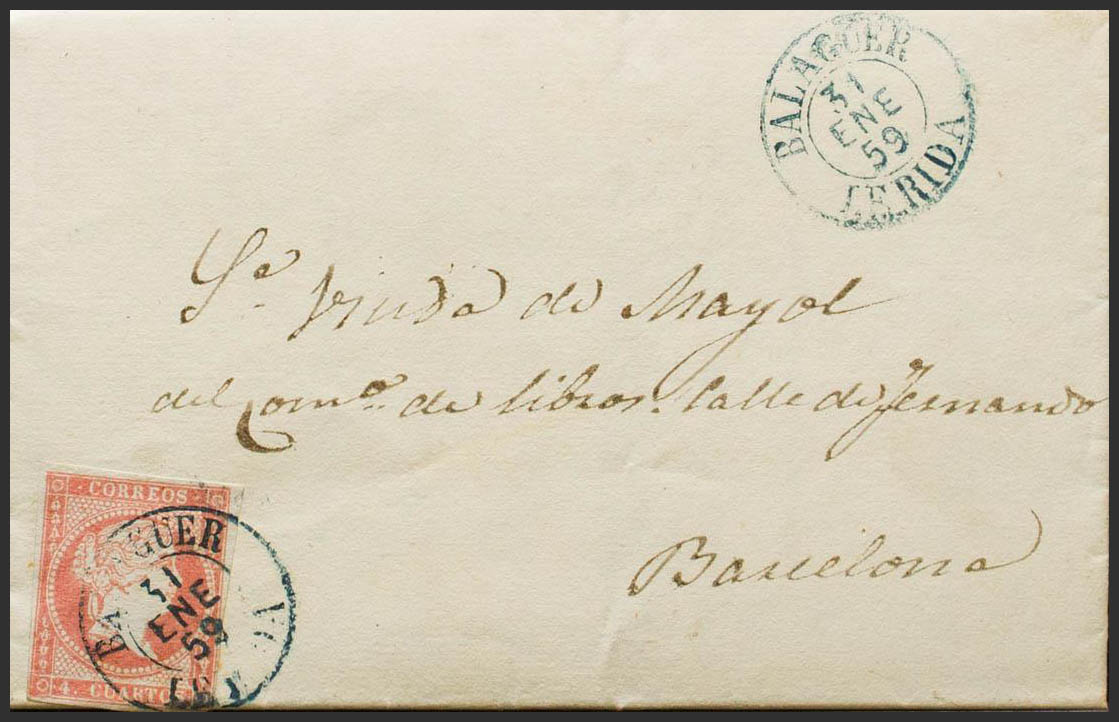 BALAGUER
31
ENE
59
LERIDA
Sª Viuda de Mayol
del Comº de libros. Calle de Fernando
Barcelona
CORREOS
BALAGUER
31
ENE
59
4 CUARTOS